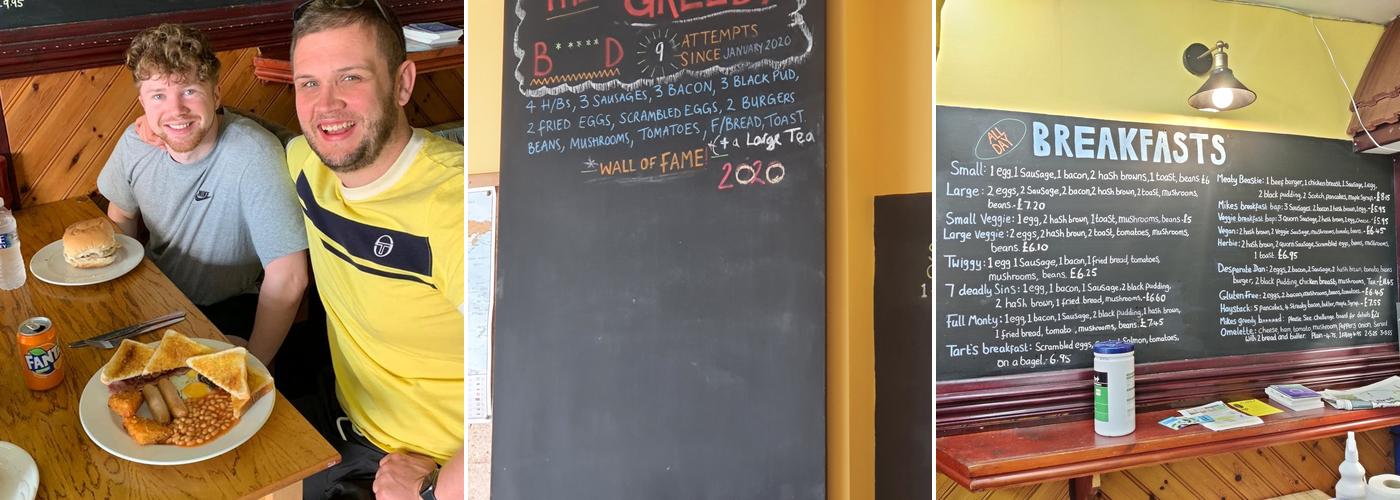 FANTA
THE GREEDY
B****D
9
ATTEMPTS
SINCE JANUARY 2020
4 H/Bs, 3 SAUSAGES, 3 BACON, 3 BLACK PUD,
2 FRIED EGGS, SCRAMBLED EGGS, 2 BURGERS
BEANS, MUSHROOMS, TOMATOES, F/BREAD, TOAST.
+ a Large Tea
*WALL OF FAME!*
2020
ALL DAY
BREAKFASTS
Small: 1 egg 1 Sausage, 1 bacon, 2 hash browns, 1 toast, beans. £6
Large: 2 eggs, 2 Sausage, 2 bacon, 2 hash brown, 2 toast, mushrooms,
beans. £7.20
Small Veggie: 1 egg, 2 hash brown, 1 toast, mushrooms, beans. £5
Large Veggie: 2 eggs, 2 hash brown, 2 toast, tomatoes, mushrooms,
beans. £6.10
Twiggy: 1 egg 1 Sausage, 1 bacon, 1 fried bread, tomatoes,
mushrooms, beans. £6.25
7 deadly Sins: 1 egg, 1 bacon, 1 Sausage, 2 black pudding,
2 hash brown, 1 fried bread, mushrooms. £6.60
Full Monty: 1 egg, 1 bacon, 1 Sausage, 2 black pudding, 1 hash brown,
1 fried bread, tomato, mushrooms, beans. £7.45
Tart's breakfast: Scrambled eggs, Salmon, tomatoes,
on a bagel. 6.95
Meaty Beastie: 1 beef burger, 1 chicken breast, 1 Sausage, 1 egg,
2 black pudding, 2 Scotch pancakes, maple Syrup. £8.15
Mikes breakfast bap: 3 Sausages, 2 bacon 1 hash brown, 1 egg. £5.95
Veggie breakfast bap: 3 Quorn Sausage, 2 hash brown, 1 egg, Cheese. £5.95
Vegan: 2 hash brown, 2 Veggie Sausage, mushrooms, tomato, beans. £6.45
Herbie: 2 hash brown, 2 quorn Sausage, Scrambled eggs, beans, mushrooms,
1 toast. £6.95
Desperate Dan: 2 eggs, 2 bacon, 2 Sausage, 2 hash brown, tomato, beans
burger, 2 black pudding, chicken breast, mushrooms, Tea
Gluten Free: 2 eggs, 2 bacon, mushrooms, beans, tomatoes. £6.45
Haystack: 5 pancakes, 4 Streaky bacon, butter, maple Syrup. £7.55
Mikes greedy b******d: please See Challenge board for details £21
Omelette: cheese, ham, tomato, mushroom, Peppers, onion
With 2 bread and butter.